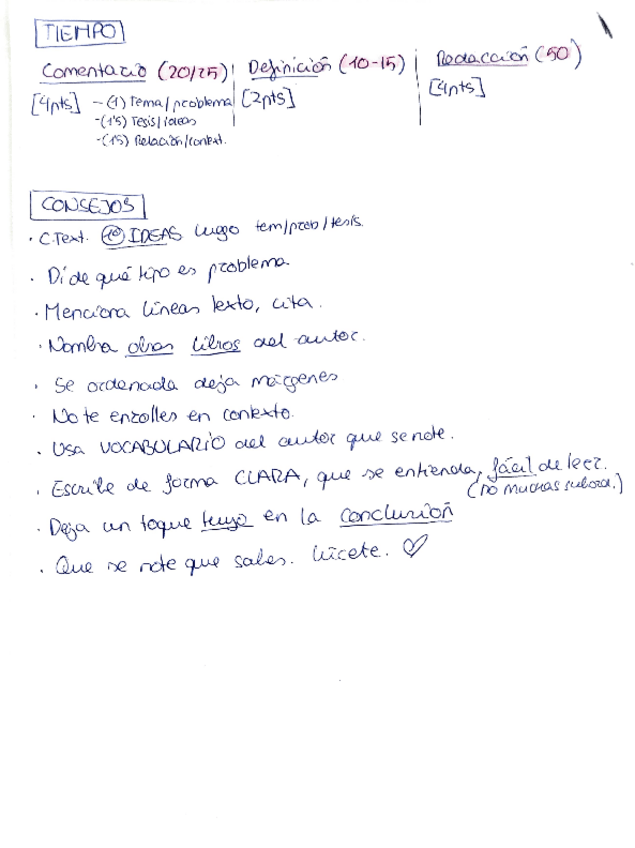 TIEMPO
Comentario (20/25) Definición (10-15) Redacción (50)
[4pts] - (1) Tema/problema [2pts] [4pts]
- (1'5) Tesis/ideas
- (1'5) Relación/context.
CONSEJOS
· C.Text. 1º IDEAS luego tem/prob/tesis.
· Di de qué tipo es problema.
· Menciona líneas texto, cita.
· Nombra obras libros del autor.
· Se ordenada deja márgenes
· No te enrolles en contexto.
· Usa VOCABULARIO del autor que se note.
· Escribe de forma CLARA, que se entienda, fácil de leer.
(no muchas subord.)
· Deja un toque tuyo en la conclusión
· Que se note que sabes. Lúcete. ♡